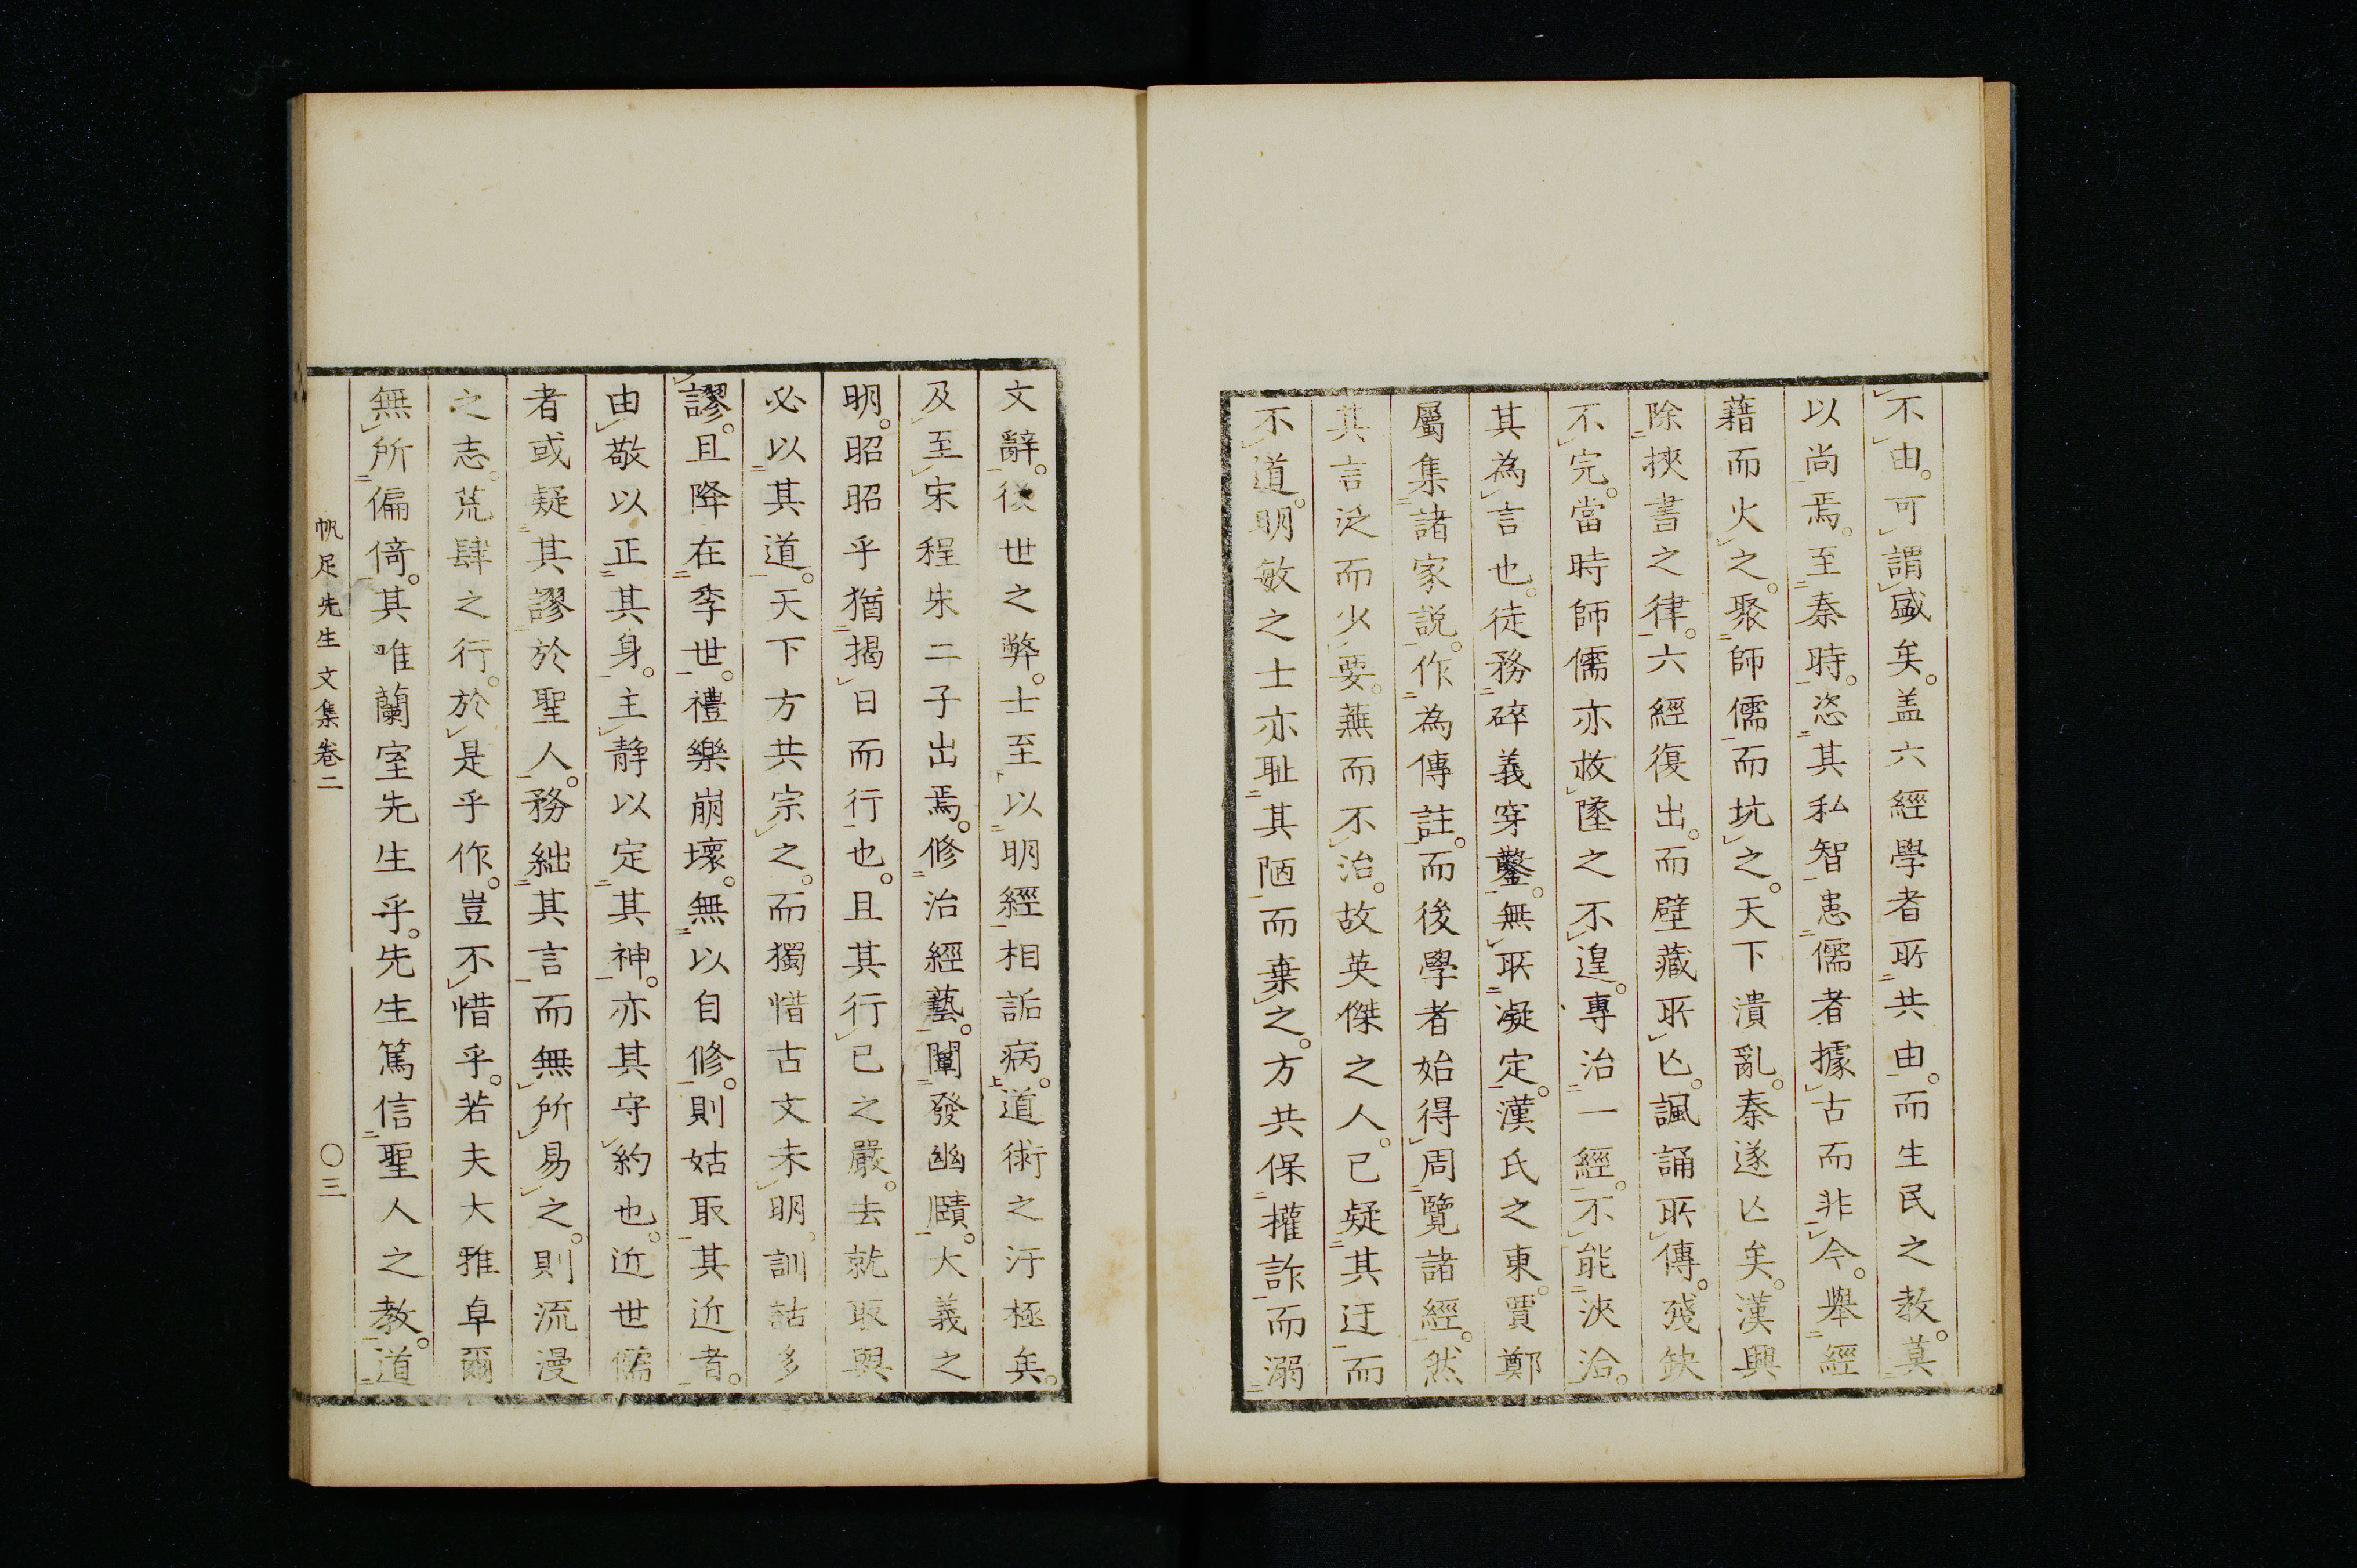 不由。可謂盛矣。盖六經學者所共由。而生民之教。莫
以尚焉。至秦時。恣其私智。患儒者據古而非今。舉經
藉而火之。聚師儒而坑之。天下潰亂。秦遂亾矣。漢興
除挾書之律。六經復出。而壁藏所亾。諷誦所傳。殘缺
不完。當時師儒亦救墜之不遑。專治一經。不能浹洽。
其為言也。徒務碎義穿鑿。無所凝定。漢氏之東。賈鄭
屬集諸家説。作為傳註。而後學者始得周覽諸經。然
其言泛而少要。蕪而不治。故英傑之人。已疑其迂而
不道。明敏之士亦耻其陋而棄之。方共保權詐而溺
文辭。後世之弊。士至以明經相詬病。道術之汙極矣。
及至宋程朱二子出焉。修治經藝。闡發幽賾。大義之
明。昭昭乎猶揭日而行也。且其行已之嚴。去就取與
必以其道。天下方共宗之。而獨惜古文未明。訓詁多
謬。且降在季世。禮樂崩壞。無以自修。則姑取其近者。
由敬以正其身。主静以定其神。亦其守約也。近世儒
者或疑其謬於聖人。務絀其言而無所易之。則流漫
之志。荒肆之行。於是乎作。豈不惜乎。若夫大雅卓爾
無所偏倚。其唯蘭室先生乎。先生篤信聖人之教。道
帆足先生文集卷二 〇三